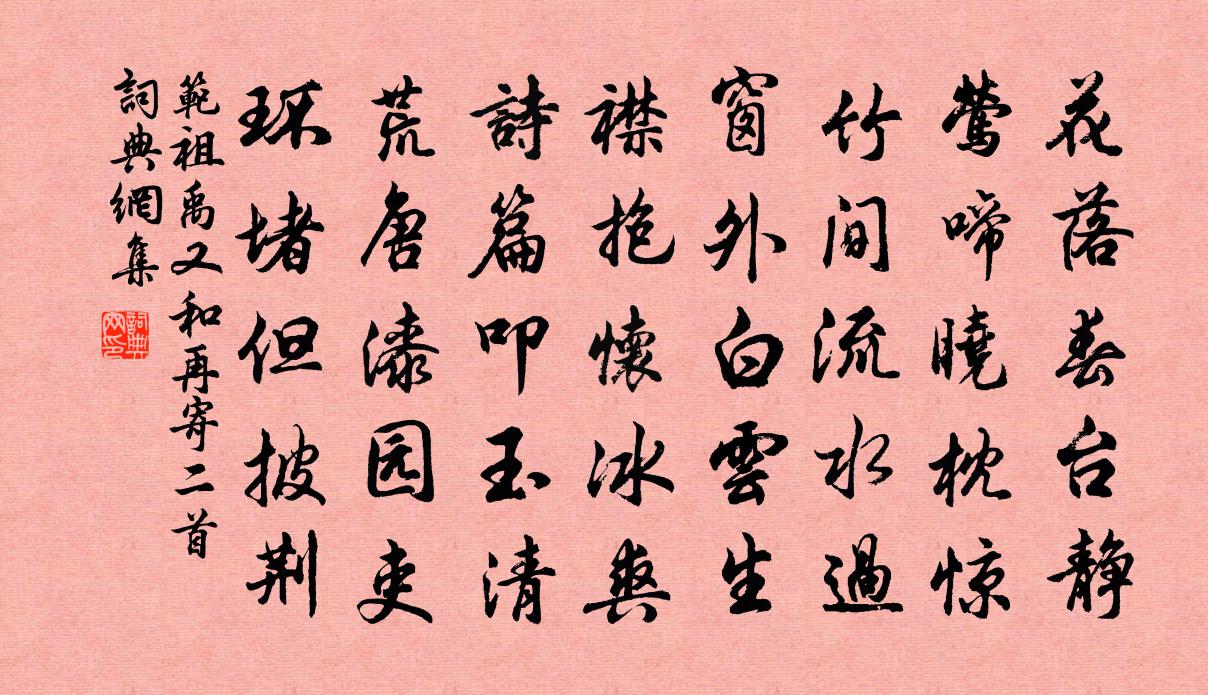 花落春台静
莺啼曉枕惊
竹间流水過
窗外白雲生
襟抱懷冰爽
詩篇叩玉清
荒唐漆园吏
环堵但披荆
範祖禹又和再寄二首
詞典網集
詞典網印